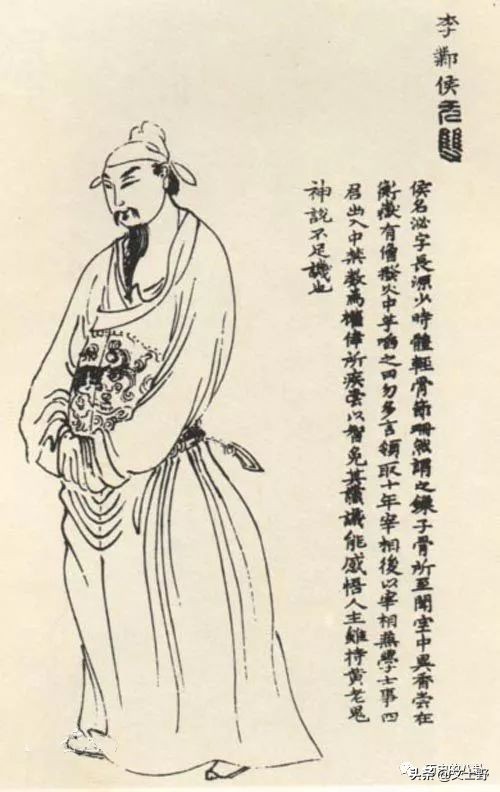 李鄴侯
无雙
侯名泌字長源少時體輕骨節珊然謂之鎖子骨所至聞室中異香嘗在
衡嶽有僧撥火中芋啗之曰勿多言領取十年宰相後以宰相兼學士事四
召出入中禁數為權倖所疾嘗以智免其讜議能感悟人主雖持黃老鬼
神說不足譏也
头条